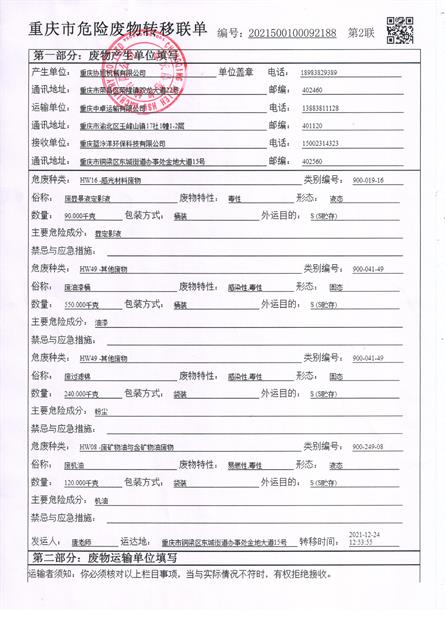 重庆市危险废物转移联单 编号: 2021500100092188 第2联
第一部分: 废物产生单位填写
产生单位: 重庆 机械有限公司 单位盖章 电话: 18983829389
通讯地址: 重庆市荣昌区荣隆镇 大道22号 邮编: 402460
运输单位: 重庆中卓运输有限公司 电话: 13883811128
通讯地址: 重庆市渝北区玉峰山镇17社 幢1-2层 邮编: 401120
接收单位: 重庆蓝泠洋环保科技有限公司 电话: 15002314323
通讯地址: 重庆市铜梁区东城街道办事处金地大道15号 邮编: 402560
危废种类: HW16-感光材料废物 类别编号: 900-019-16
俗称: 废显景液定影液 废物特性: 毒性 形态: 液态
数量: 90.000千克 包装方式: 桶装 外运目的: S (S贮存)
主要危险成分: 显定影液
禁忌与应急措施:
危废种类: HW49-其他废物 类别编号: 900-041-49
俗称: 废油漆桶 废物特性: 感染性,毒性 形态: 固态
数量: 550.000千克 包装方式: 桶装 外运目的: S (S贮存)
主要危险成分: 油漆
禁忌与应急措施:
危废种类: HW49-其他废物 类别编号: 900-041-49
俗称: 废过滤棉 废物特性: 感染性,毒性 形态: 固态
数量: 240.000千克 包装方式: 袋装 外运目的: S (S贮存)
主要危险成分: 粉尘
禁忌与应急措施:
危废种类: HW08-废矿物油与含矿物油废物 类别编号: 900-249-08
俗称: 废机油 废物特性: 易燃性,毒性 形态: 液态
数量: 120.000千克 包装方式: 袋装 外运目的: S (S贮存)
主要危险成分: 机油
禁忌与应急措施:
发运人: 唐老师 运达地: 重庆市铜梁区东城街道办事处金地大道15号 转移时间: 2021-12-24 12:53:55
第二部分: 废物运输单位填写
运输者须知: 你必须核对以上栏目事项, 当与实际情况不符时, 有权拒绝接收。